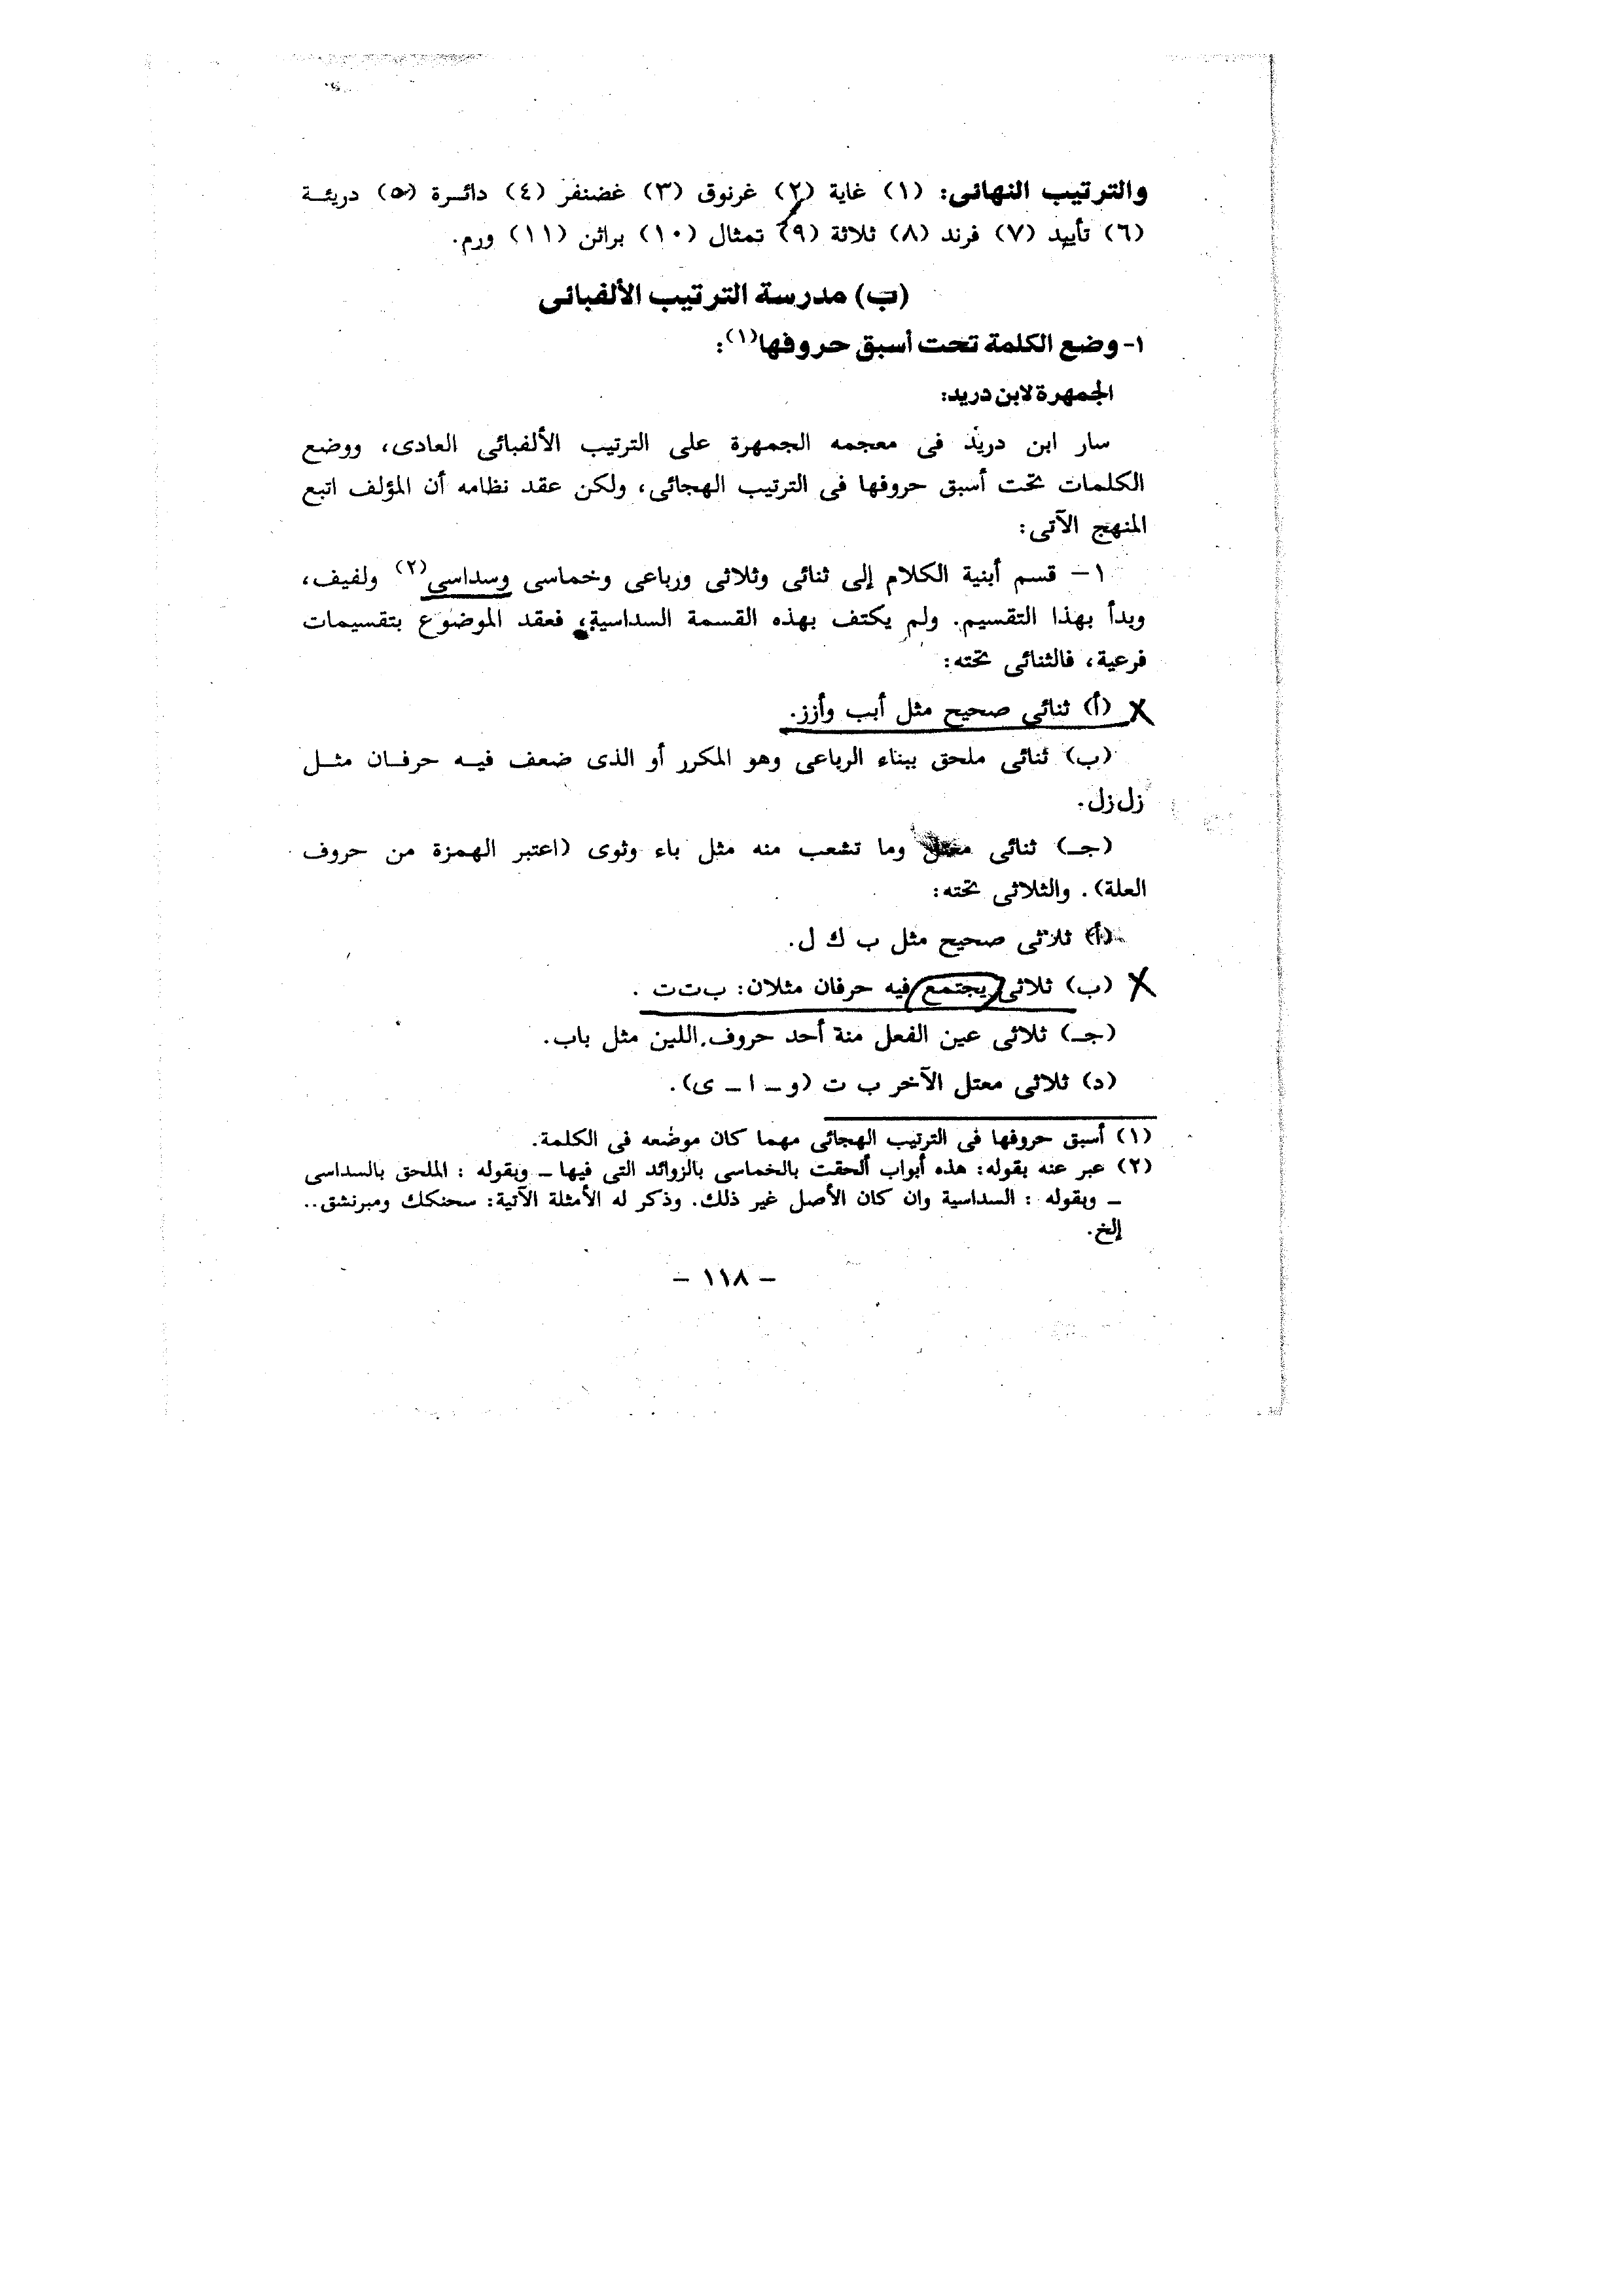 والترتيب النهائى: (١) غاية (٢) غرنوق (٣) غضنفر (٤) دائــرة (٥) دريئــة
(٦) تأييد (٧) فرند (٨) ثلاثة (٩) تمثال (١٠) براثن (١١) ورم.
(ب) مدرسة الترتيب الألفبائى
١- وضع الكلمة تحت أسبق حروفها(١):
الجمهرة لابن دريد:
سار ابن دريد فى معجمه الجمهرة على الترتيب الألفبائى العادى، ووضع
الكلمات تحت أسبق حروفها فى الترتيب الهجائى، ولكن عقد نظامه أن المؤلف اتبع
المنهج الآتى:
١ – قسم أبنية الكلام إلى ثنائى وثلاثى ورباعى وخماسى وسداسى(٢) ولفيف،
وبدأ بهذا التقسيم. ولم يكتف بهذه القسمة السداسية، فعقد الموضوع بتقسيمات
فرعية، فالثنائى تحته:
(أ) ثنائى صحيح مثل أبب وأزز.
(ب) ثنائى ملحق ببناء الرباعى وهو المكرر أو الذى ضعف فيــه حرفــان مثــل
زل زل.
(جـ) ثنائى معتل وما تشعب منه مثل باء وثوى (اعتبر الهمزة من حروف
العلة). والثلاثى تحته:
(أ) ثلاثى صحيح مثل ب ك ل.
(ب) ثلاثى يجتمع فيه حرفان مثلان: ب ت ت .
(جـ) ثلاثى عين الفعل منة أحد حروف اللين مثل باب.
(د) ثلاثى معتل الآخر ب ت (و – ا – ى).
(١) أسبق حروفها فى الترتيب الهجائى مهما كان موضعه فى الكلمة.
(٢) عبر عنه بقوله: هذه أبواب ألحقت بالخماسى بالزوائد التى فيها – وبقوله : الملحق بالسداسى
– وبقوله : السداسية وان كان الأصل غير ذلك. وذكر له الأمثلة الآتية: سحنكك ومبرنشق..
إلخ.
– ١١٨ –